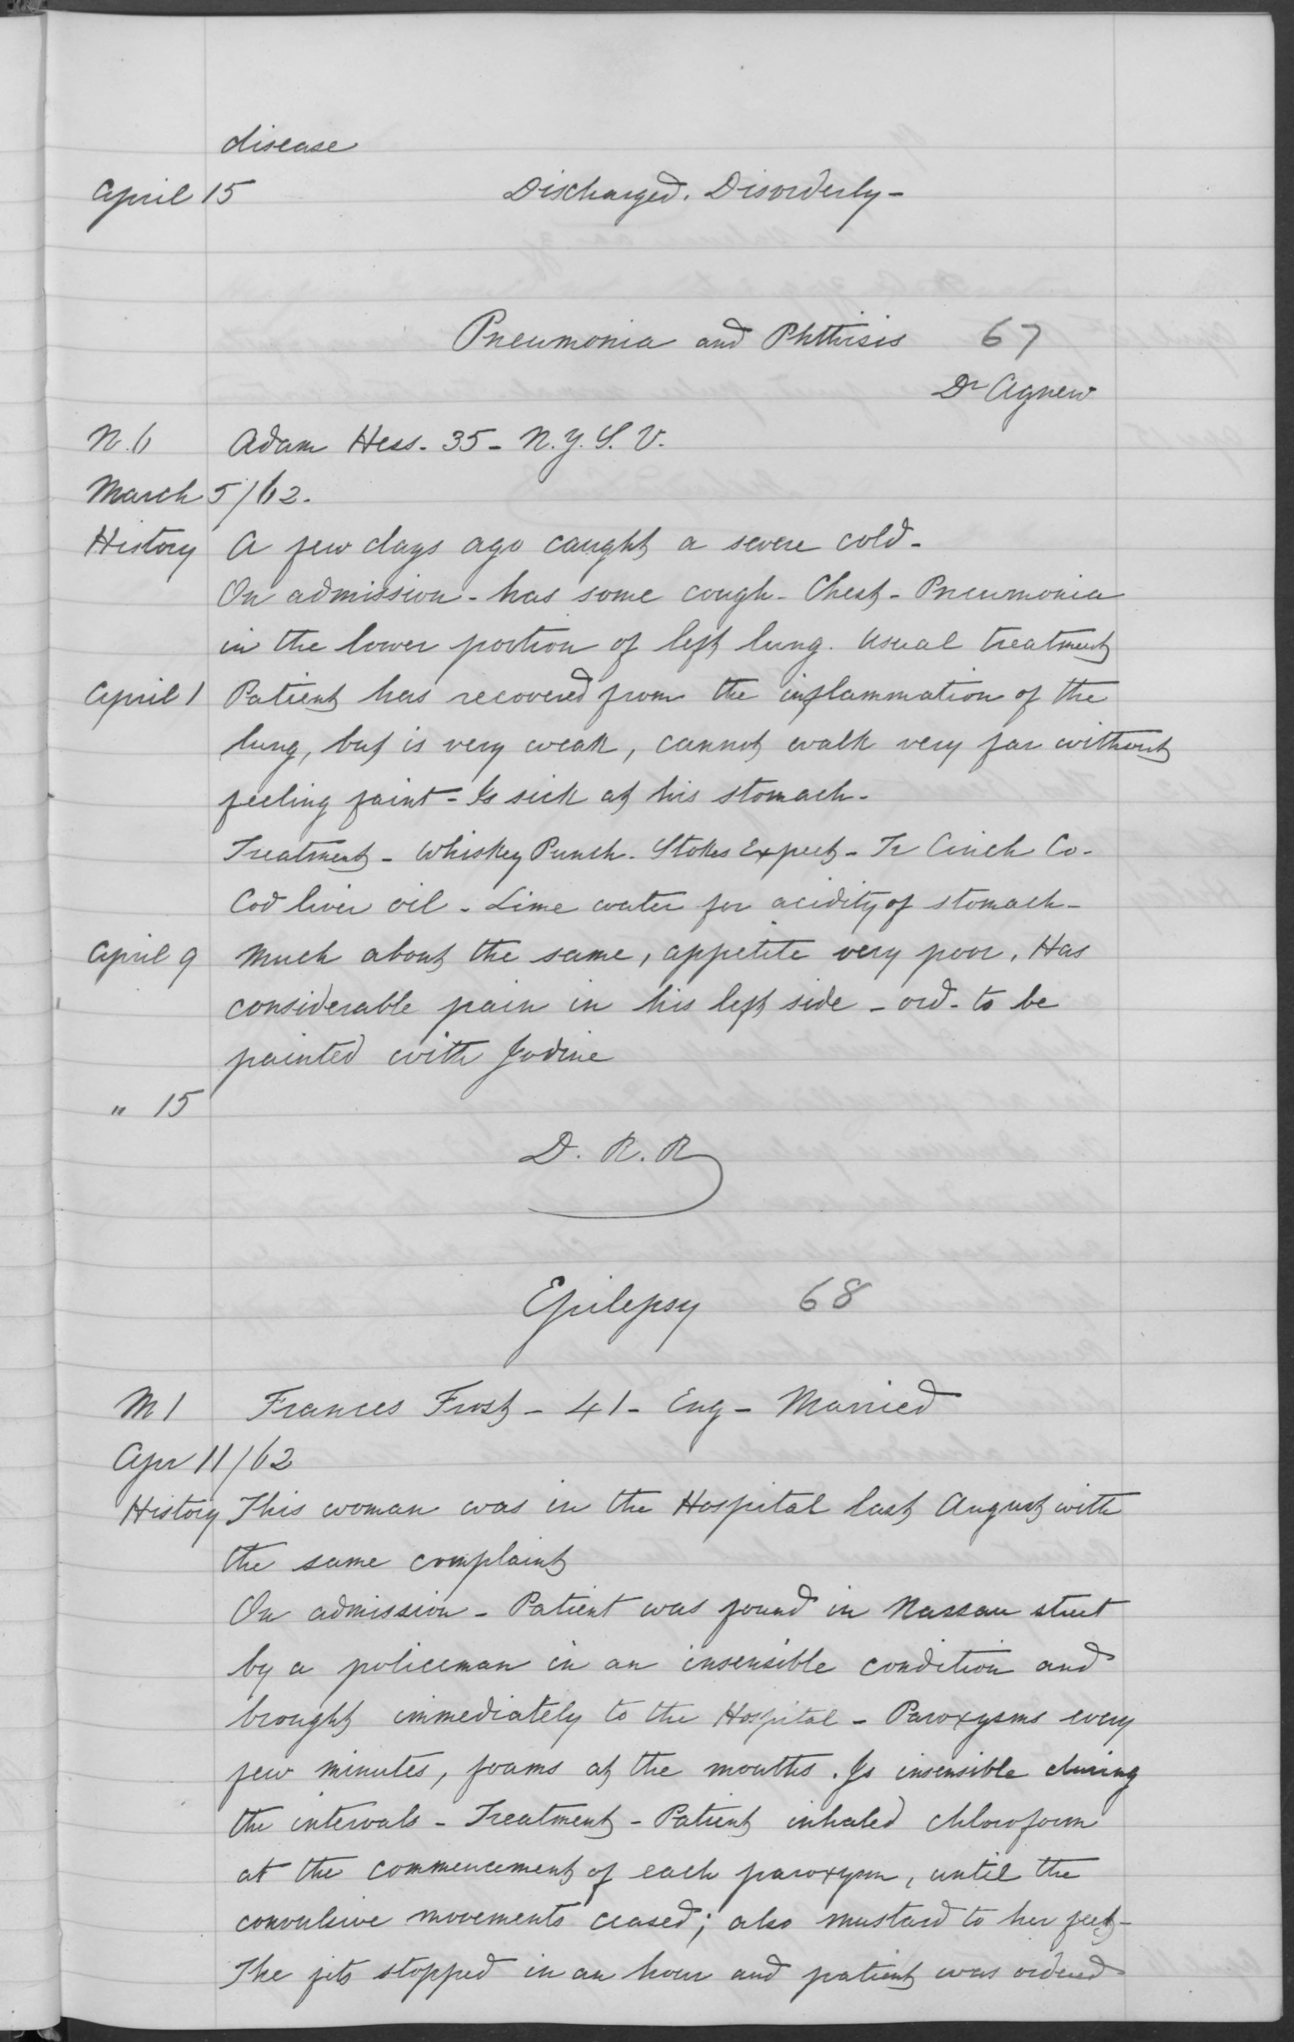 disease
April 15 Discharged. Disorderly -
Pneumonia and Phthisis 67
Dr Agnew
N. 6 Adam Hess. 35 - N. Y. S. V.
March 5/62.
History A few days ago caught a severe cold -
On admission - has some cough - Chest - Pneumonia
in the lower portion of left lung. Usual treatment
April 1 Patient has recovered from the inflammation of the
lung, but is very weak, cannot walk very far without
feeling faint - Is sick at his stomach -
Treatment - Whiskey Punch - Stokes Expect - Tr Cinch Co -
Cod liver oil - Lime water for acidity of stomach -
April 9 Much about the same, appetite very poor. Has
considerable pain in his left side - ord - to be
painted with Iodine
" 15
D. R. R
Epilepsy 68
M 1 Frances Frost - 41 - Eng - Married
Apr 11/62
History This woman was in the Hospital last August with
the same complaint
On admission - Patient was found in Nassau street
by a policeman in an insensible condition and
brought immediately to the Hospital - Paroxysms every
few minutes, foams at the mouths. Is insensible during
the intervals - Treatment - Patient inhaled chloroform
at the commencement of each paroxysm, until the
convulsive movements ceased; also mustard to her feet -
The fits stopped in an hour and patient was ordered